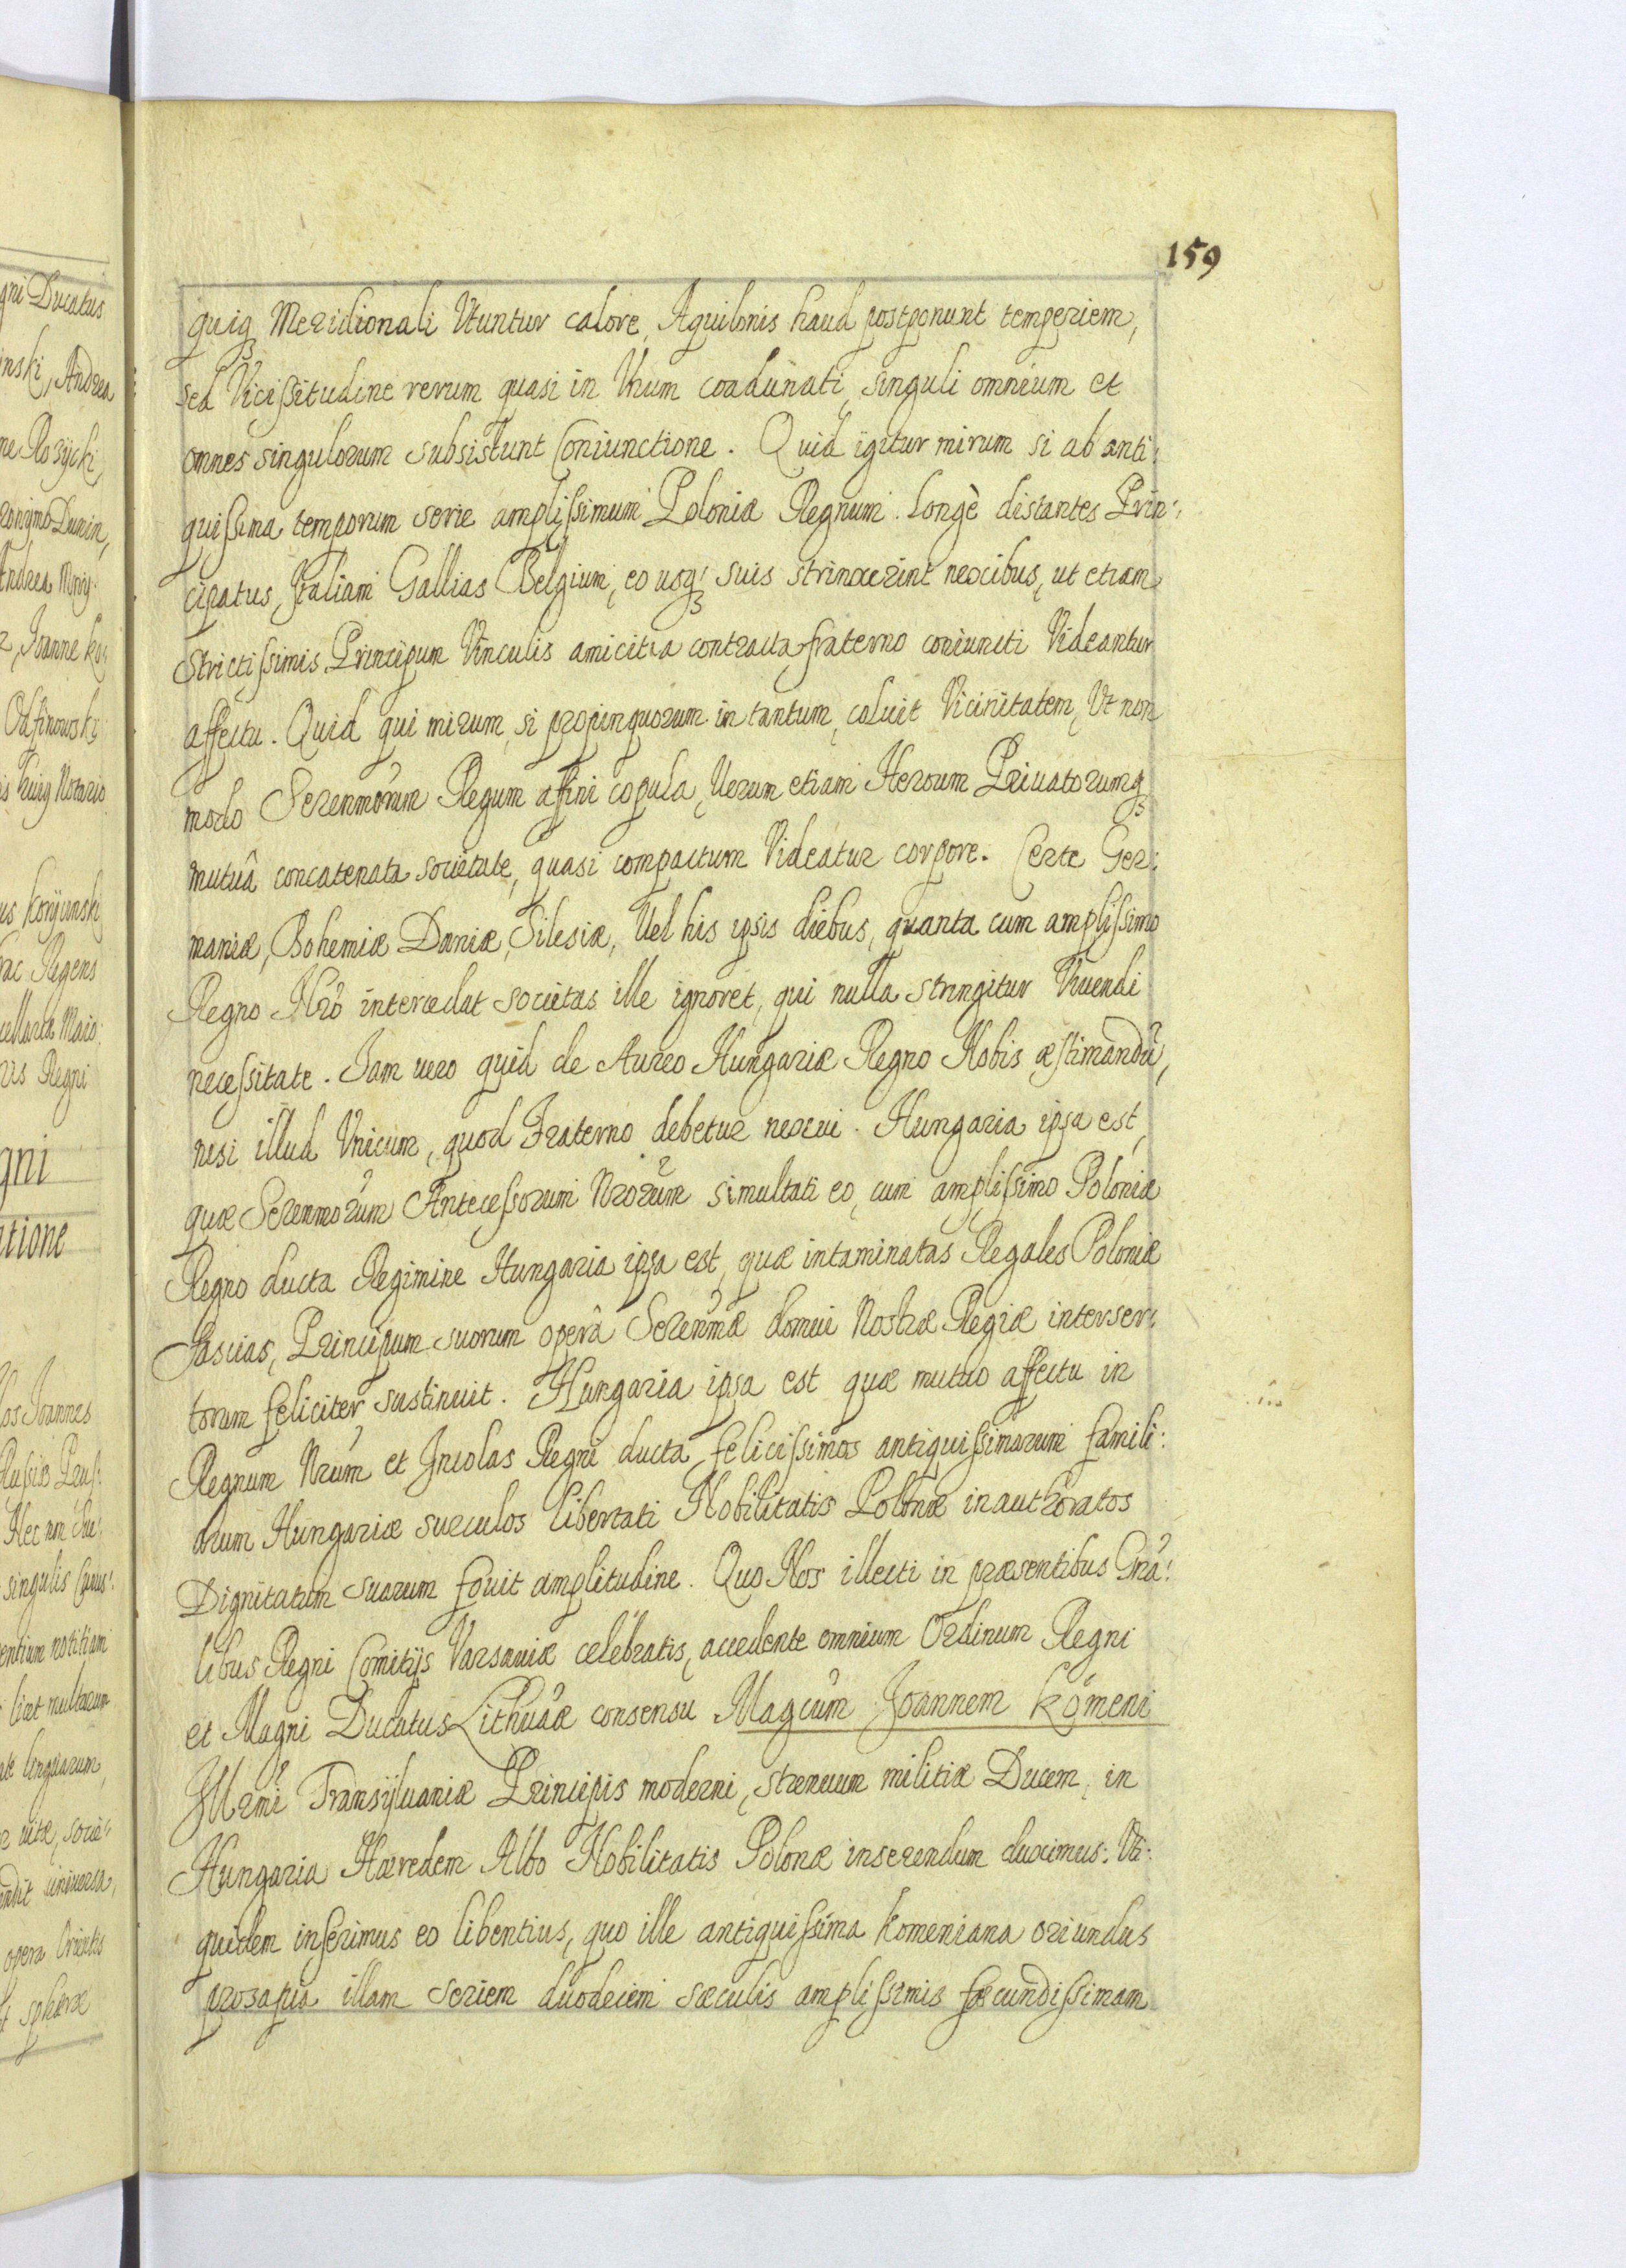 159
quiq Meridionali Utuntur calore, Aquilonis haud postponunt temperiem,
sed Vicissitudine rerum quasi in Unum coadunati, singuli omnium et
omnes singulorum subsistunt Coniunctione. Quid igitur mirum si ab anti:
quissima temporum serie amplissimum Poloniæ Regnum longè distantes Prin:
cipatus, Italiam Gallias Belgium, eo usq: suis strinxerint nexibus, ut etiam
Strictissimis Principum Vinculis amicitia contracta fraterno coniuncti Videantur
affectu. Quid qui mirum, si propinquorum in tantum, coluit Vicinitatem, Ut non
modo Serenmorum Regum affini copula, Verum etiam Heroum Privatorumq
mutuâ concatenata societate, quasi compactum Videatur corpore. Certe Ger:
maniæ, Bohemiæ Daniæ, Silesiæ, Vel his ipsis diebus, quanta cum amplissimo
Regno Nrõ intercedat societas ille ignoret, qui nulla stringitur Vivendi
necessitate. Iam vero quid de Aureo Hungariæ Regno Nobis æstimandũ,
nisi illud Unicum, quod Fraterno debetur nexui. Hungaria ipsa est,
quæ Serenmorum Antecessorum Nrorum simultati eo, cum amplissimo Poloniæ
Regno ducta Regimine Hungaria ipsa est, quæ intaminatas Regales Poloniæ
Fascias, Principum suorum operâ Serenmæ domui Nostræ Regiæ interser:
torum feliciter sustinuit. Hungaria ipsa est quæ mutuo affectu in
Regnum Nrum et Incolas Regni ducta, felicissimos antiquissimarum famili:
arum Hungariæ surculos libertati Nobilitatis Polonæ inauthoratos
Dignitatum suarum fovit amplitudine. Quo Nos illecti in præsentibus Gnã:
libus Regni Comitijs Varsaviæ celebratis, accedente omnium Ordinum Regni
et Magni Ducatus Lithuãæ consensu Magcum Joannem Komeni
Illrmi Transylvaniæ Principis moderni, strenuum militiæ Ducem, in
Hungaria Hæredem Albo Nobilitatis Polonæ inserendum duximus: Uti:
quidem inserimus eo libentius, quo ille antiquissima Komeniana oriundus
prosapia illam seriem duodecim sæculis amplissimis fæcundissimam